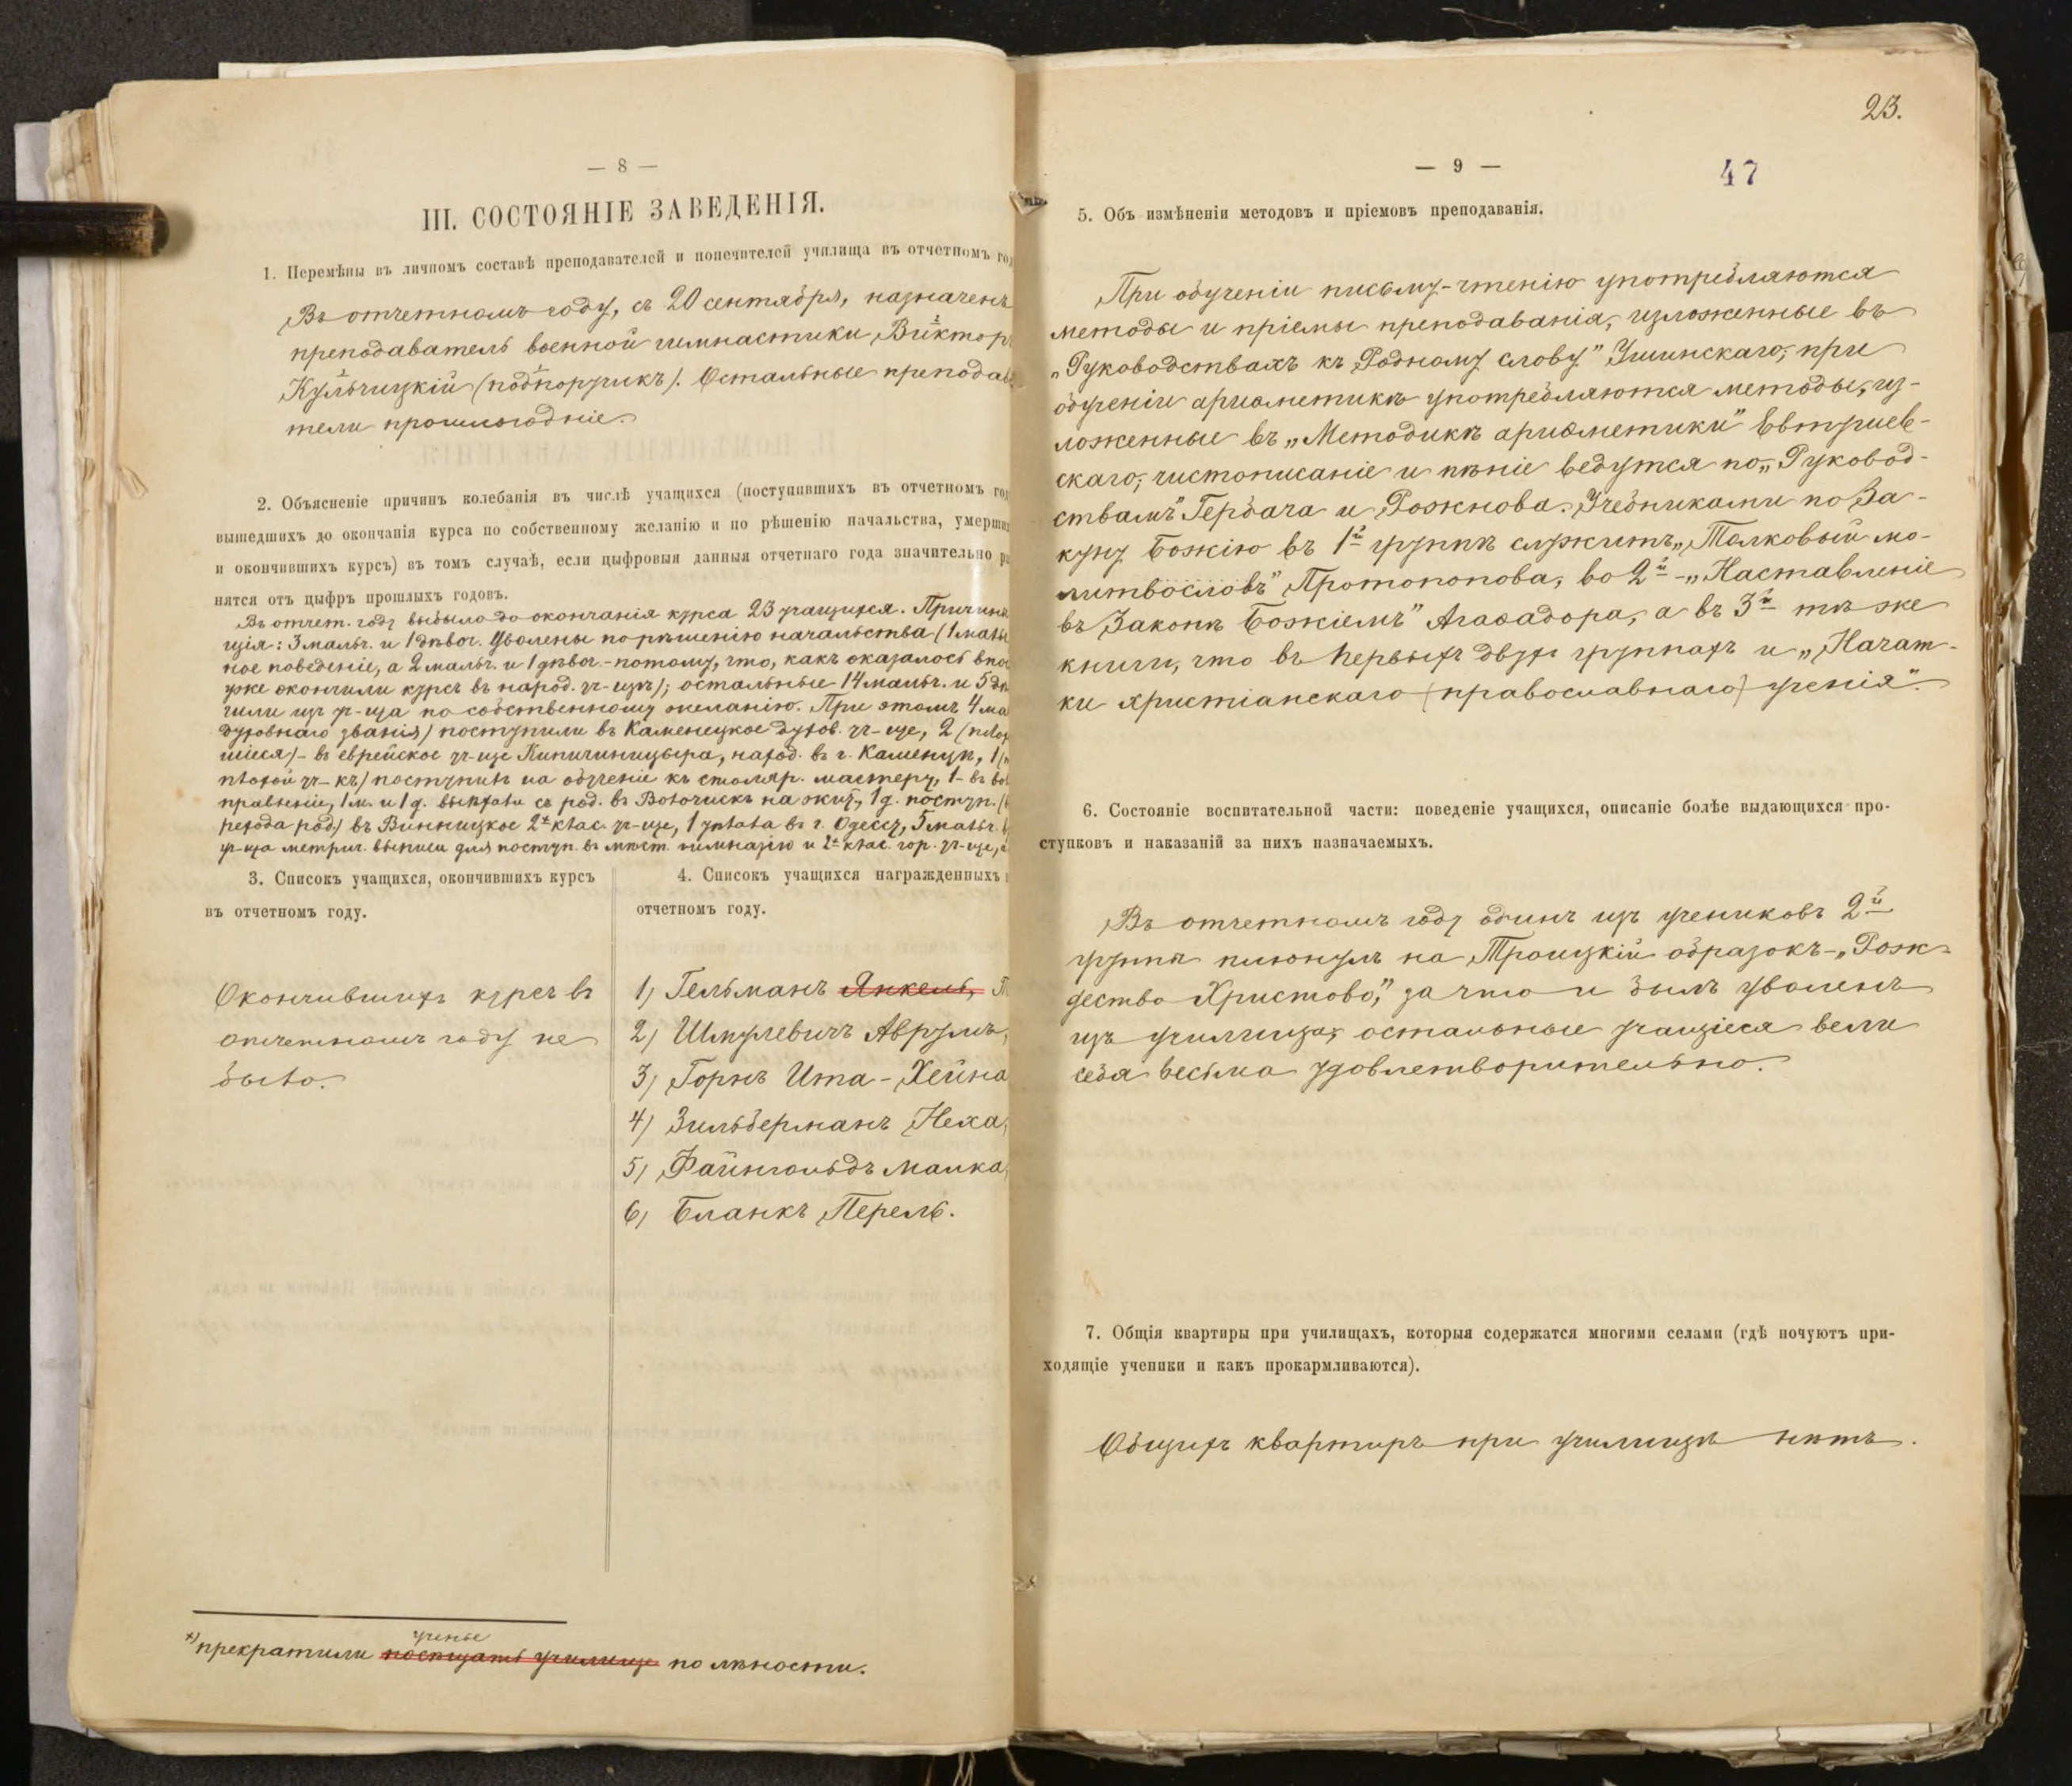 — 8 —
III. СОСТОЯНІЕ ЗАВЕДЕНІЯ.
1. Перемѣны въ личномъ составѣ преподавателей и попечителей училища въ отчетномъ го
Въ отчетномъ году, съ 20 сентября, назначенъ
преподаватель военной гимнастики Виктор
Кульчицкій (подпоручикъ). Остальные преподав
тели прошлогодніе.
2. Объясненіе причинъ колебанія въ числѣ учащихся (поступившихъ въ отчетномъ го
вышедшихъ до окончанія курса по собственному желанію и по рѣшенію начальства, умерши
и окончившихъ курсъ) въ томъ случаѣ, если цыфровыя данныя отчетнаго года значительно р
нятся отъ цыфръ прошлыхъ годовъ.
Въ отчет. году выбыло до окончанія курса 23 учащихся. Причины
ція: 3 мальч. и 1 дѣвоч. уволены по рѣшенію начальства (1 мальч
ное поведеніе, а 2 мальч. и 1 дѣвоч. - потому, что, какъ оказалось впос
уже окончили курсъ въ народ. уч-щѣ); остальные 14 мальч. и 5 дѣ
чили изъ уч-ща по собственному желанію. При этомъ 4 ма
духовнаго званія) поступили въ Каменецкое духов. уч-ще, 2
шіеся) - въ еврейское уч-ще Кипичницера, наход. въ г. Каменцѣ, 1
плохой уч-къ) поступилъ на обученіе къ столяр. мастеру, 1 - въ во
правленіе, 1 м. и 1 д. выѣхали съ род. въ Волочискъ на жит., 1 д. поступ.
рехода род.) въ Винницкое 2х клас. уч-ще, 1 уѣхала въ г. Одессу, 5 мальч.
уч-ща метрич. выписи для поступ. въ мѣст. гимназію и 2х клас. гор. уч-ще,
3. Списокъ учащихся, окончившихъ курсъ
въ отчетномъ году.
Окончившихъ курсъ въ
отчетномъ году не
было.
4. Списокъ учащихся награжденныхъ
отчетномъ году.
1) Гельманъ Янкель,
2) Шмулевичъ Аврумъ,
3) Горнъ Ита-Хейна
4) Зильберманъ Неха,
5) Файнгольдъ Малка,
6) Бланкъ Перель.
ученье
*) прекратили посѣщать училище по лѣности.
23.
47
— 9 —
5. Объ измѣненіи методовъ и пріемовъ преподаванія.
При обученіи письму-чтенію употребляются
методы и пріемы преподаванія, изложенные въ
„Руководствахъ къ Родному слову" Ушинскаго; при
обученіи ариѳметикѣ употребляются методы, из-
ложенные въ „Методикѣ ариѳметики" Евтушев-
скаго; чистописаніе и пѣніе ведутся по „Руковод-
ствамъ" Гербача и Рожнова. Учебниками по За-
кону Божію въ 1й группѣ служитъ „Толковый мо-
литвословъ" Протопопова, во 2й - „Наставленіе
въ Законѣ Божіемъ" Агаѳадора, а въ 3й тѣ же
книги, что въ первыхъ двухъ группахъ и „Начат-
ки христіанскаго (православнаго) ученія".
6. Состояніе воспитательной части: поведеніе учащихся, описаніе болѣе выдающихся про-
ступковъ и наказаній за нихъ назначаемыхъ.
Въ отчетномъ году одинъ изъ учениковъ 2й
группы плюнулъ на Троицкій образокъ - „Рож-
дество Христово", за что и былъ уволенъ
изъ училища; остальные учащіеся вели
себя весьма удовлетворительно.
7. Общія квартиры при училищахъ, которыя содержатся многими селами (гдѣ ночуютъ при-
ходящіе ученики и какъ прокармливаются).
Общихъ квартиръ при училищѣ нѣтъ.